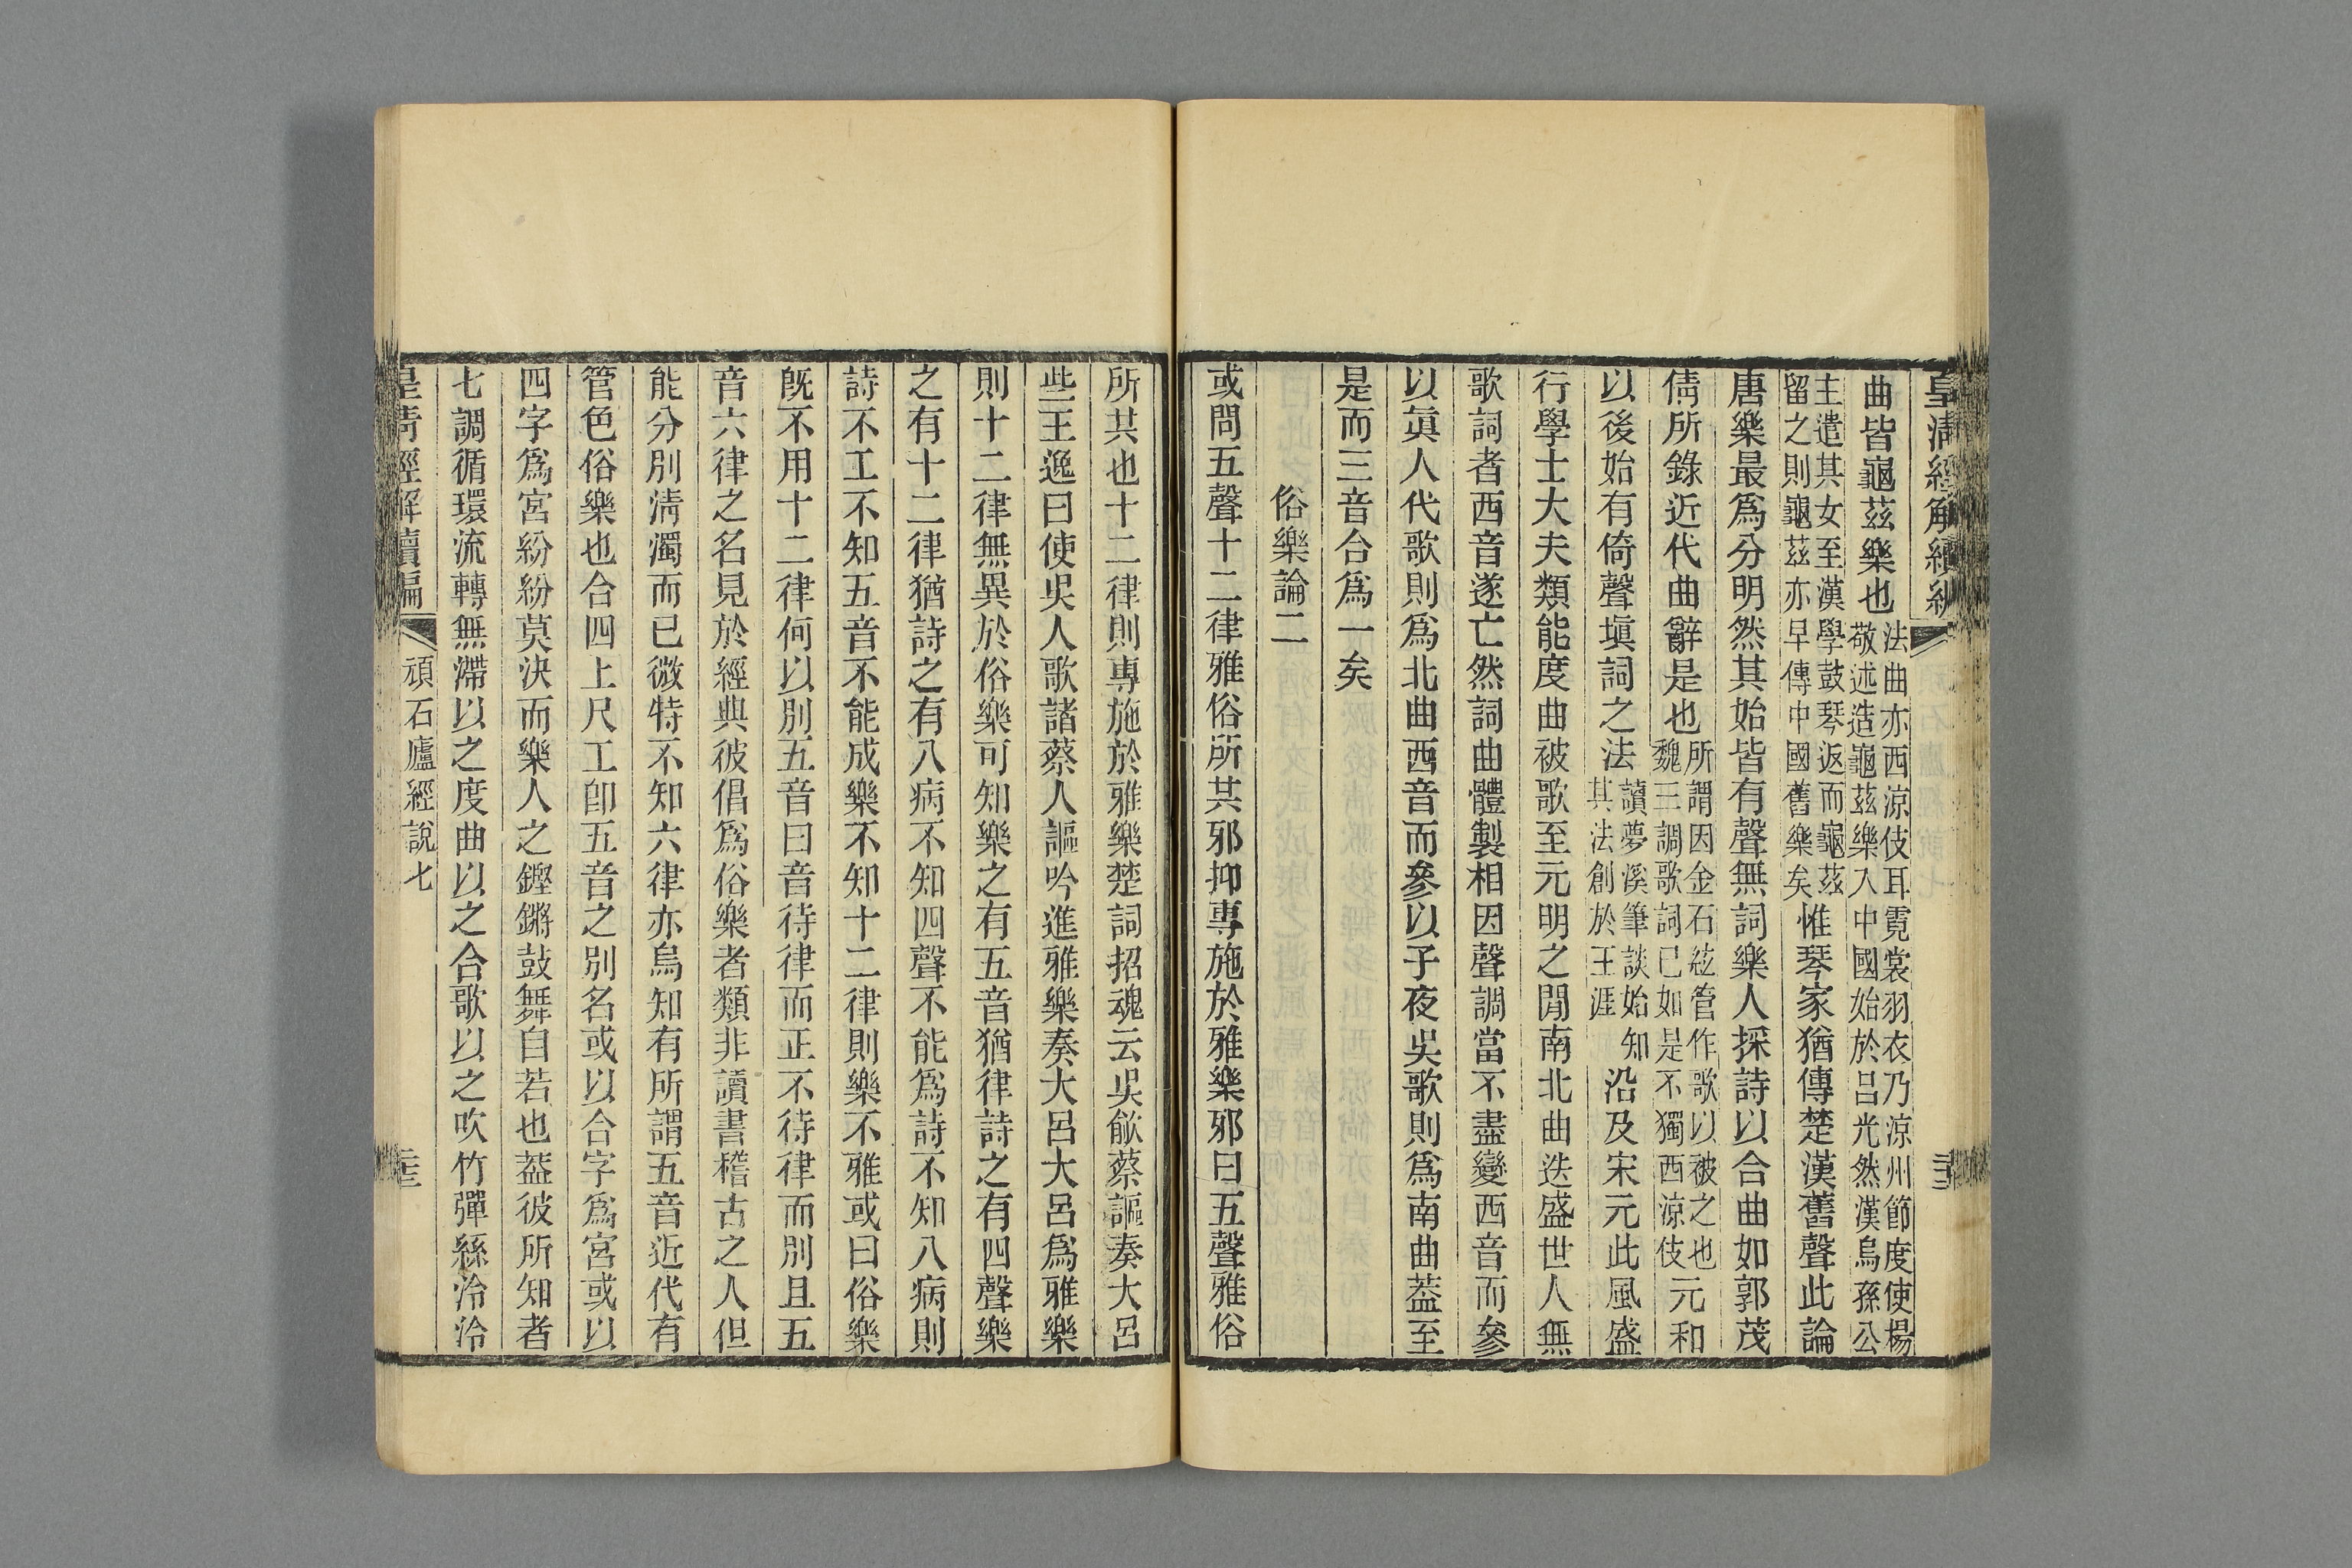 皇清經解續編
曲皆龜茲樂也法曲亦西涼伎耳霓裳羽衣乃涼州節度使楊敬述造龜茲樂入中國始於呂光然漢烏孫公
主遣其女至漢學鼓琴返而龜茲留之則龜茲亦早傳中國舊樂矣惟琴家猶傳楚漢舊聲此論
唐樂最爲分明然其始皆有聲無詞樂人採詩以合曲如郭茂
倩所錄近代曲辭是也所謂因金石絃管作歌以被之也魏三調歌詞已如是不獨西涼伎元和
以後始有倚聲塡詞之法讀夢溪筆談始知其法創於王涯沿及宋元此風盛
行學士大夫類能度曲被歌至元明之閒南北曲迭盛世人無
歌詞者西音遂亡然詞曲體製相因聲調當不盡變西音而參
以眞人代歌則爲北曲西音而參以子夜吳歌則爲南曲葢至
是而三音合爲一矣
俗樂論二
或問五聲十二律雅俗所共邪抑專施於雅樂邪曰五聲雅俗
所共也十二律則專施於雅樂楚詞招魂云吳歈蔡謳奏大呂
些王逸曰使吳人歌諸蔡人謳吟進雅樂奏大呂大呂爲雅樂
則十二律無異於俗樂可知樂之有五音猶律詩之有四聲樂
之有十二律猶詩之有八病不知四聲不能爲詩不知八病則
詩不工不知五音不能成樂不知十二律則樂不雅或曰俗樂
旣不用十二律何以別五音曰音待律而正不待律而別且五
音六律之名見於經典彼倡爲俗樂者類非讀書稽古之人但
能分別淸濁而已微特不知六律亦烏知有所謂五音近代有
管色俗樂也合四上尺工卽五音之別名或以合字爲宮或以
四字爲宮紛紛莫決而樂人之鏗鏘鼓舞自若也葢彼所知者
七調循環流轉無滯以之度曲以之合歌以之吹竹彈絲泠泠
皇清經解續編
頑石廬經說七